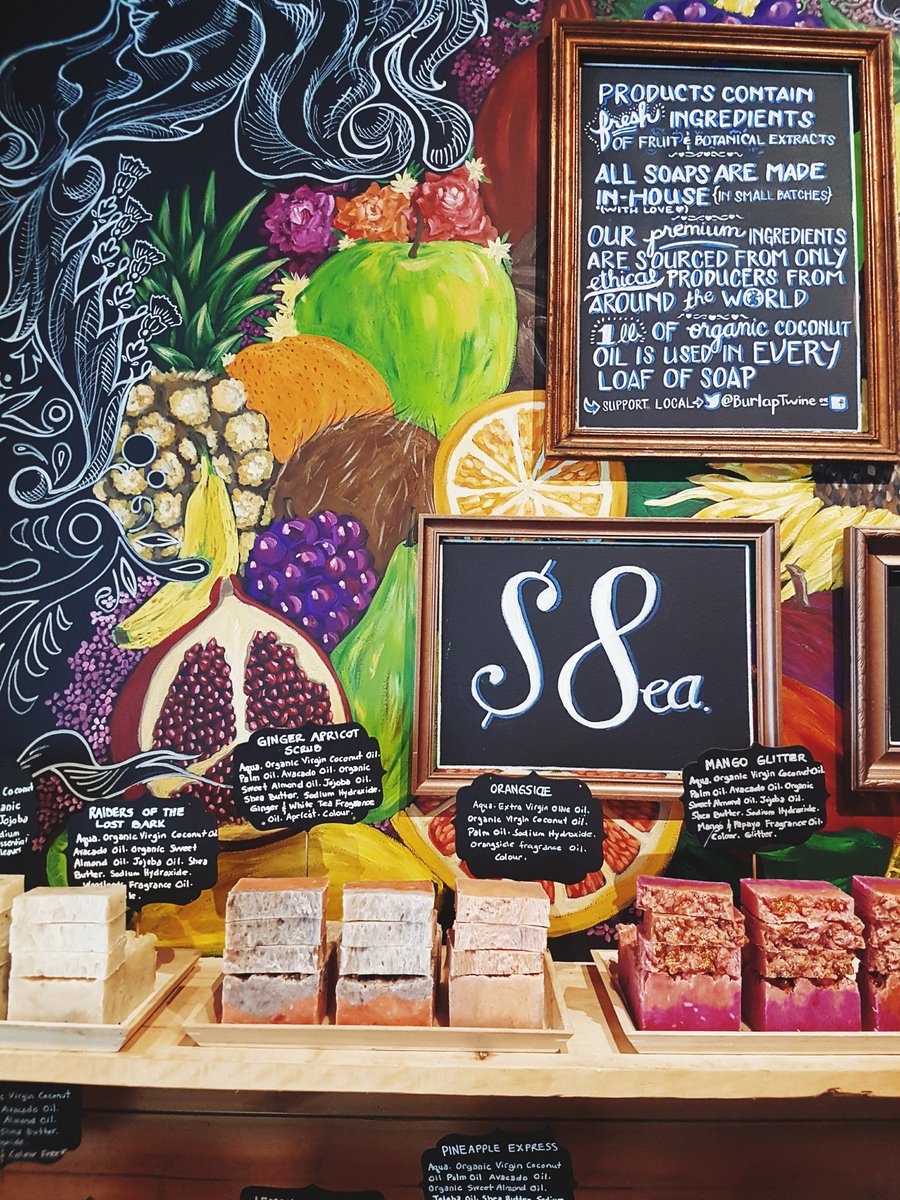 PRODUCTS CONTAIN
fresh INGREDIENTS
OF FRUIT & BOTANICAL EXTRACTS
ALL SOAPS ARE MADE
IN-HOUSE {IN SMALL BATCHES}
(WITH LOVE ♡)
OUR premium INGREDIENTS
ARE SOURCED FROM ONLY
ethical PRODUCERS FROM
AROUND the WORLD
OF organic COCONUT
OIL IS USED IN EVERY
LOAF OF SOAP
SUPPORT LOCAL → @BurlapTwine OR
$8ea.
GINGER APRICOT
SCRUB
Aqua. Organic Virgin Coconut Oil.
Palm Oil. Avocado Oil. Organic
Sweet Almond Oil. Jojoba Oil.
Shea Butter. Sodium Hydroxide.
Ginger & White Tea Fragrance
Oil. Apricot. Colour.
MANGO GLITTER
Aqua. Organic Virgin Coconut Oil.
Palm Oil. Avocado Oil. Organic
Sweet Almond Oil. Jojoba Oil.
Shea Butter. Sodium Hydroxide.
Mango & Papaya Fragrance Oil.
Colour. Glitter.
ORANGSICLE
Aqua. Extra Virgin Olive Oil.
Organic Virgin Coconut Oil.
Palm Oil. Sodium Hydroxide.
Orangsicle fragrance Oil.
Colour.
RAIDERS OF THE
LOST BARK
Aqua. Organic Virgin Coconut Oil
Avocado Oil. Organic Sweet
Almond Oil. Jojoba Oil. Shea
Butter. Sodium Hydroxide.
Fragrance Oil.
Coconut
Virgin Coconut
Avocado Oil.
Almond Oil.
Shea Butter.
& Colour Free
PINEAPPLE EXPRESS
Aqua. Organic Virgin Coconut
Oil Palm Oil Avocado Oil.
Organic Sweet Almond Oil.
Jojoba Oil. Shea Butter. Sodium